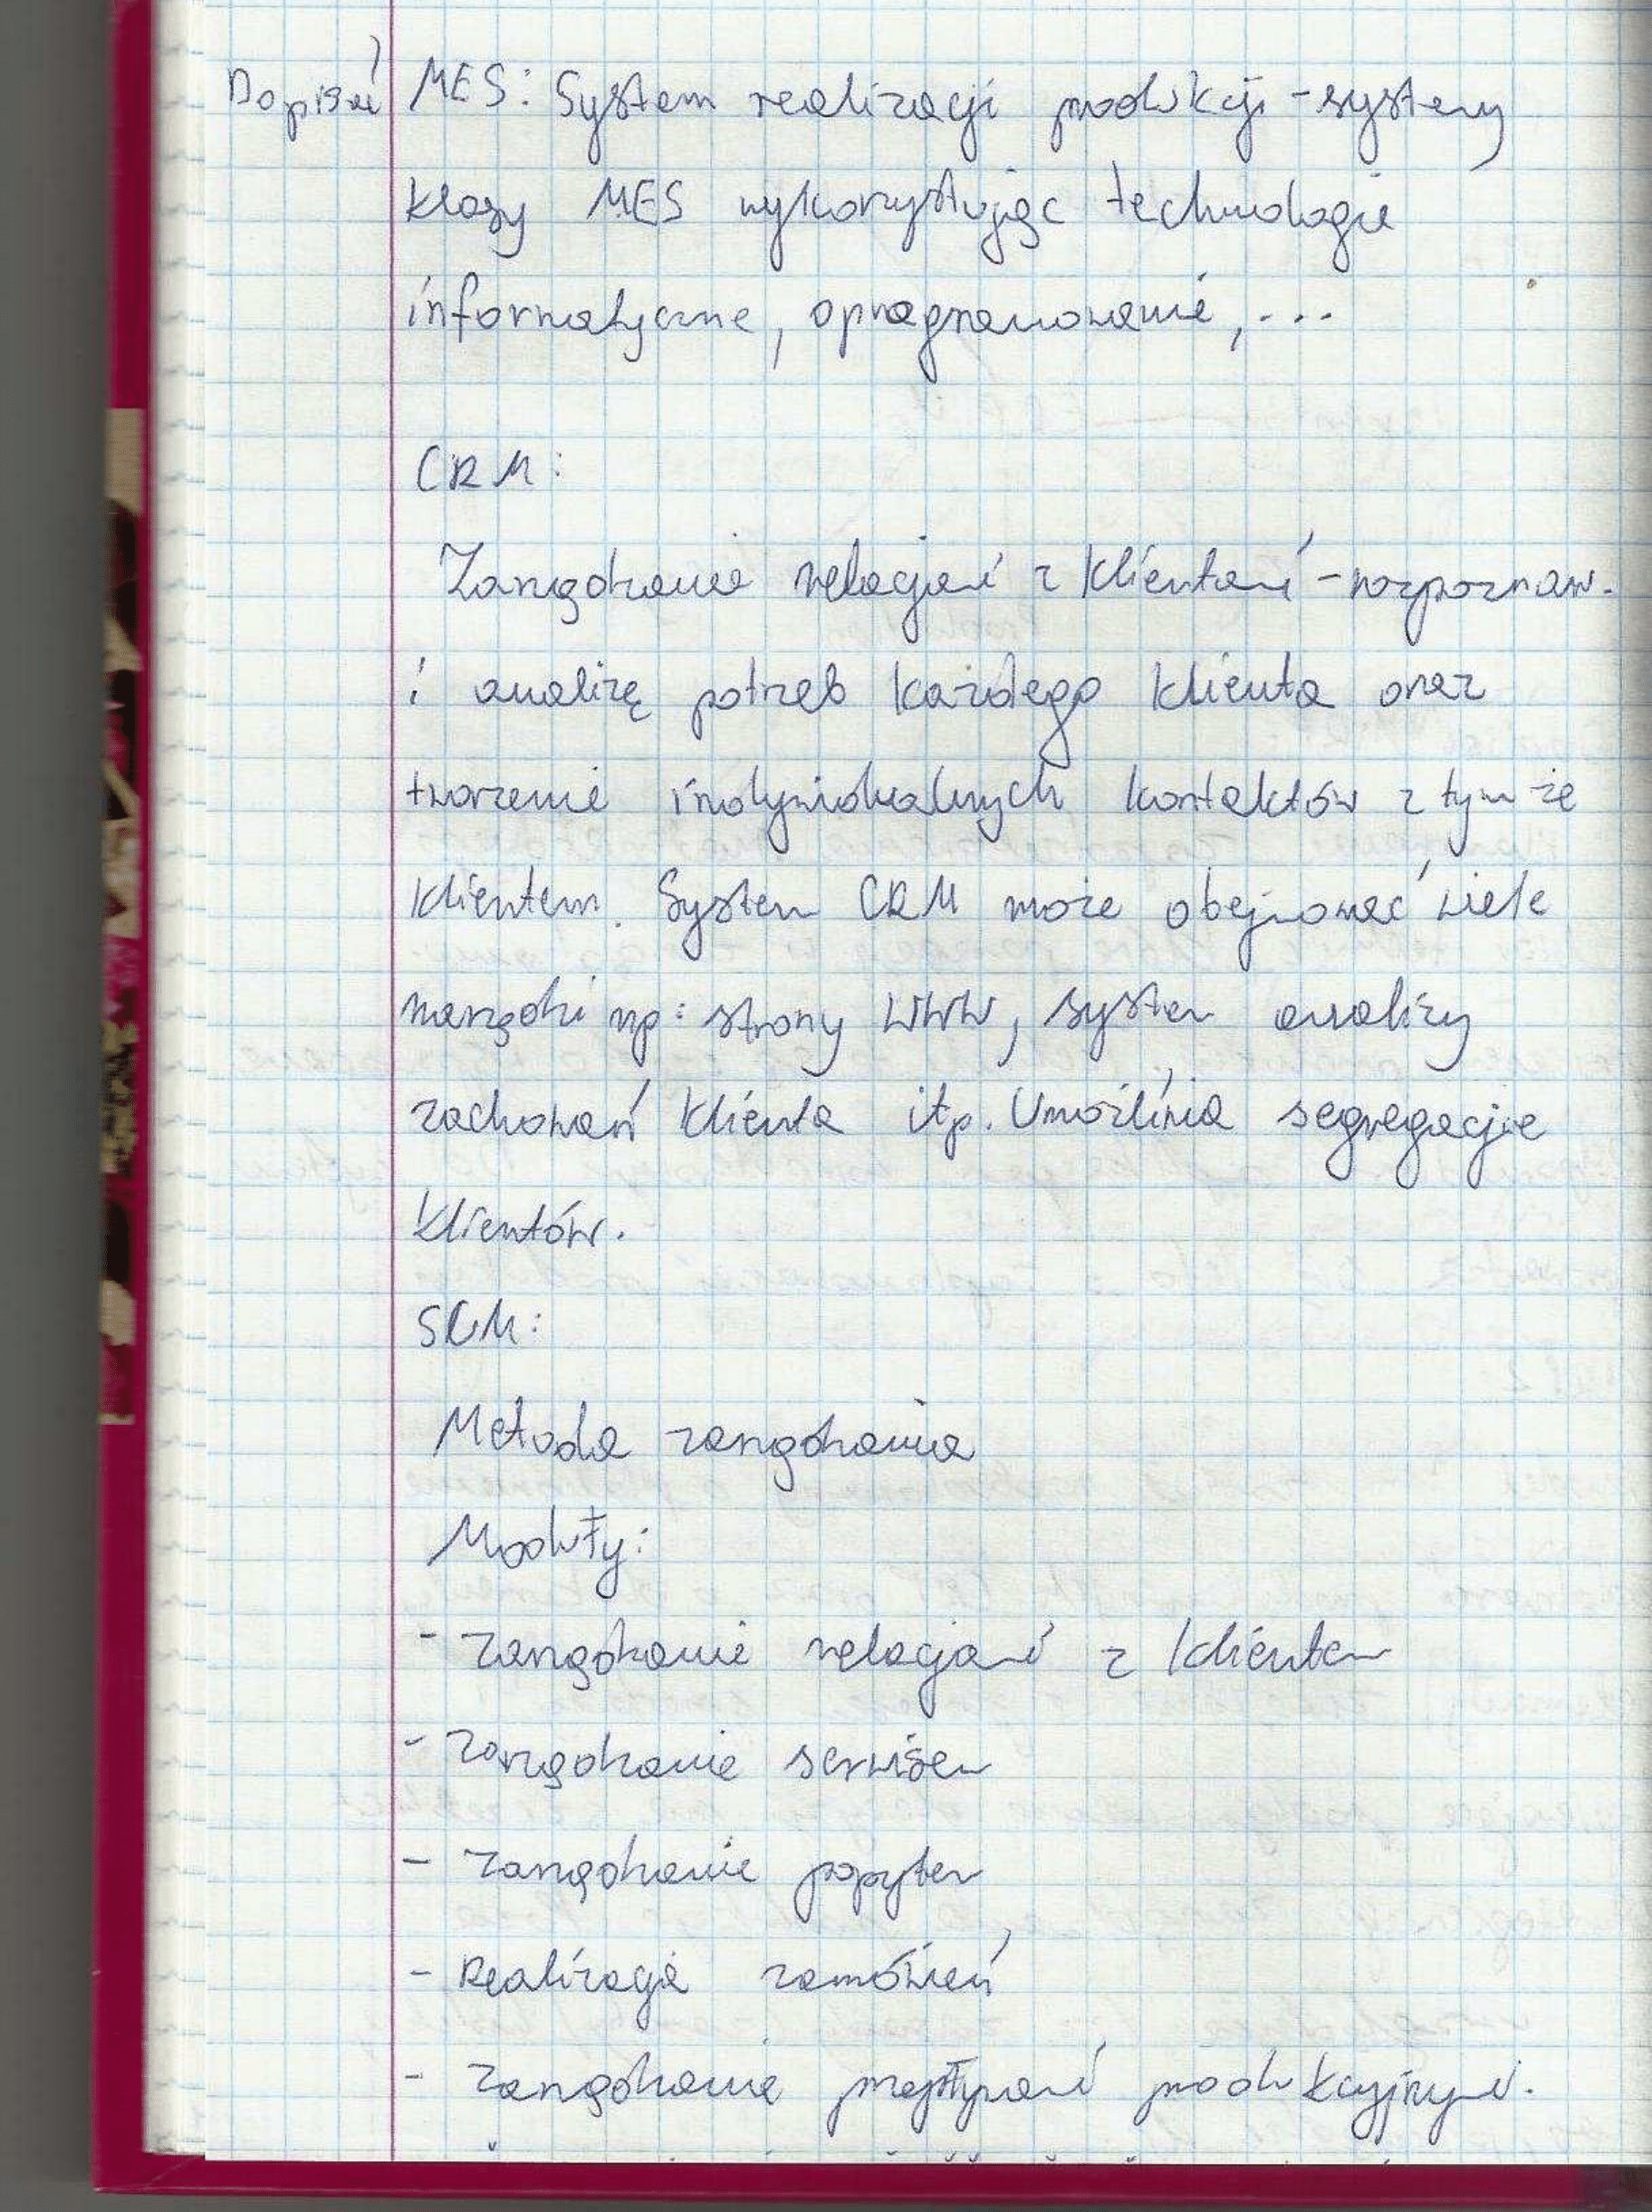 Dopisać MES: System realizacji produkcji - systemy
klasy MES wykorzystując technologie
informatyczne, oprogramowanie, ...
CRM:
Zarządzanie relacjami z klientami - rozpoznaw.
i analizę potrzeb każdego klienta oraz
tworzenie indywidualnych kontaktów z tym że
klientem. System CRM może obejmować wiele
narzędzi np: strony WWW, system analizy
zachowań klienta itp. Umożliwia segregacje
klientów.
SCM:
Metoda zarządzania
Moduły:
- zarządzanie relacjami z klientem
- zarządzanie serwisem
- zarządzanie popytem
- Realizacja zamówień
- zarządzanie przepływami produkcyjnymi.